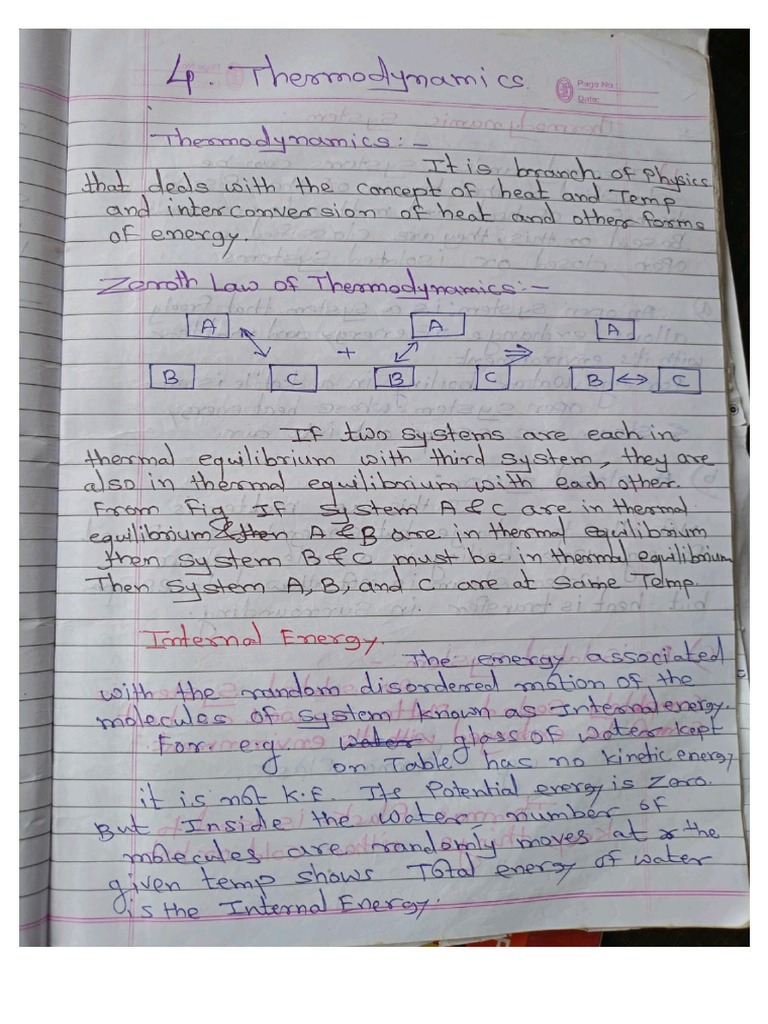 4. Thermodynamics.
Page No.:
Date:
Thermodynamics:-
It is branch of Physics
that deals with the concept of heat and Temp
and interconversion of heat and other forms
of energy.
Zeroth Law of Thermodynamics:-
A A A
+ ⇒
B C B C B ↔ C
If two systems are each in
thermal equilibrium with third system, they are
also in thermal equilibrium with each other.
From Fig If system A & C are in thermal
equilibrium & then A & B are in thermal equilibrium
then system B & C must be in thermal equilibrium
Then System A, B, and C are at Same Temp.
Internal Energy.
The energy associated
with the random disordered motion of the
molecules of system known as Internal energy.
For. e.g water glass of water kept
on Table has no kinetic energy
it is not K.E. Its Potential energy is Zero.
But Inside the water number of
molecules are randomly moves at the
given temp shows Total energy of water
is the Internal Energy.